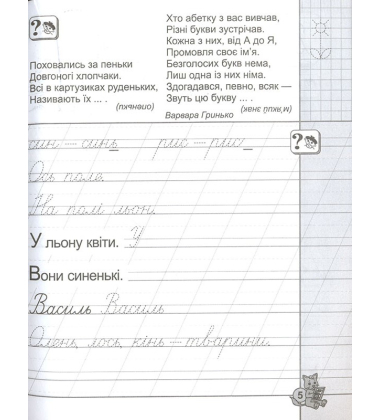 Поховались за пеньки
Довгоногі хлопчаки.
Всі в картузиках руденьких,
Називають їх ... .
(опеньки)
Хто абетку з вас вивчав,
Різні букви зустрічав.
Кожна з них, від А до Я,
Промовля своє ім'я.
Безголосих букв нема,
Лиш одна із них німа.
Здогадався, певно, всяк —
Звуть цю букву ... .
(м'який знак)
Варвара Гринько
син – синь рис – рис
Ось поле.
На полі льон.
У льону квіти. У
Вони синенькі.
Василь Василь
Олень, лось, кінь – тварини.
5